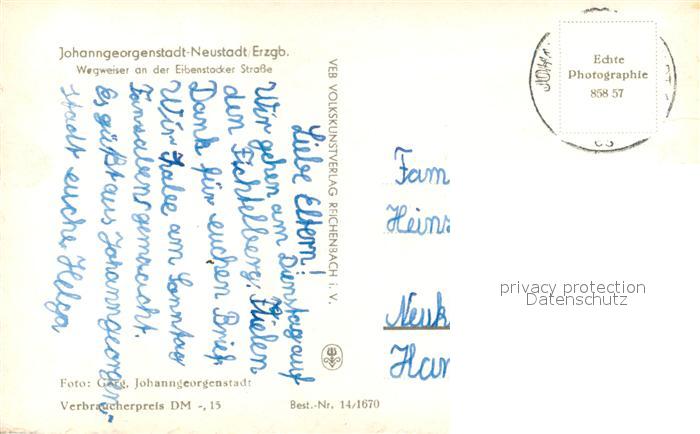 Johanngeorgenstadt-Neustadt/Erzgb.
Wegweiser an der Eibenstocker Straße
Liebe Eltern!
Wir gehen am Dienstag auf
den Fichtelberg. Vielen
Dank für euchen Brief
Wir habe am Sonntag
gemacht.
Es güßt aus Johanngeorgen-
stadt euche Helga
VEB VOLKSKUNSTVERLAG REICHENBACH i. V.
Echte
Photographie
858 57
Fam
Heins
Neuk
Har
privacy protection
Datenschutz
Foto: Georg, Johanngeorgenstadt
Verbraucherpreis DM -,15
Best.-Nr. 14/1670